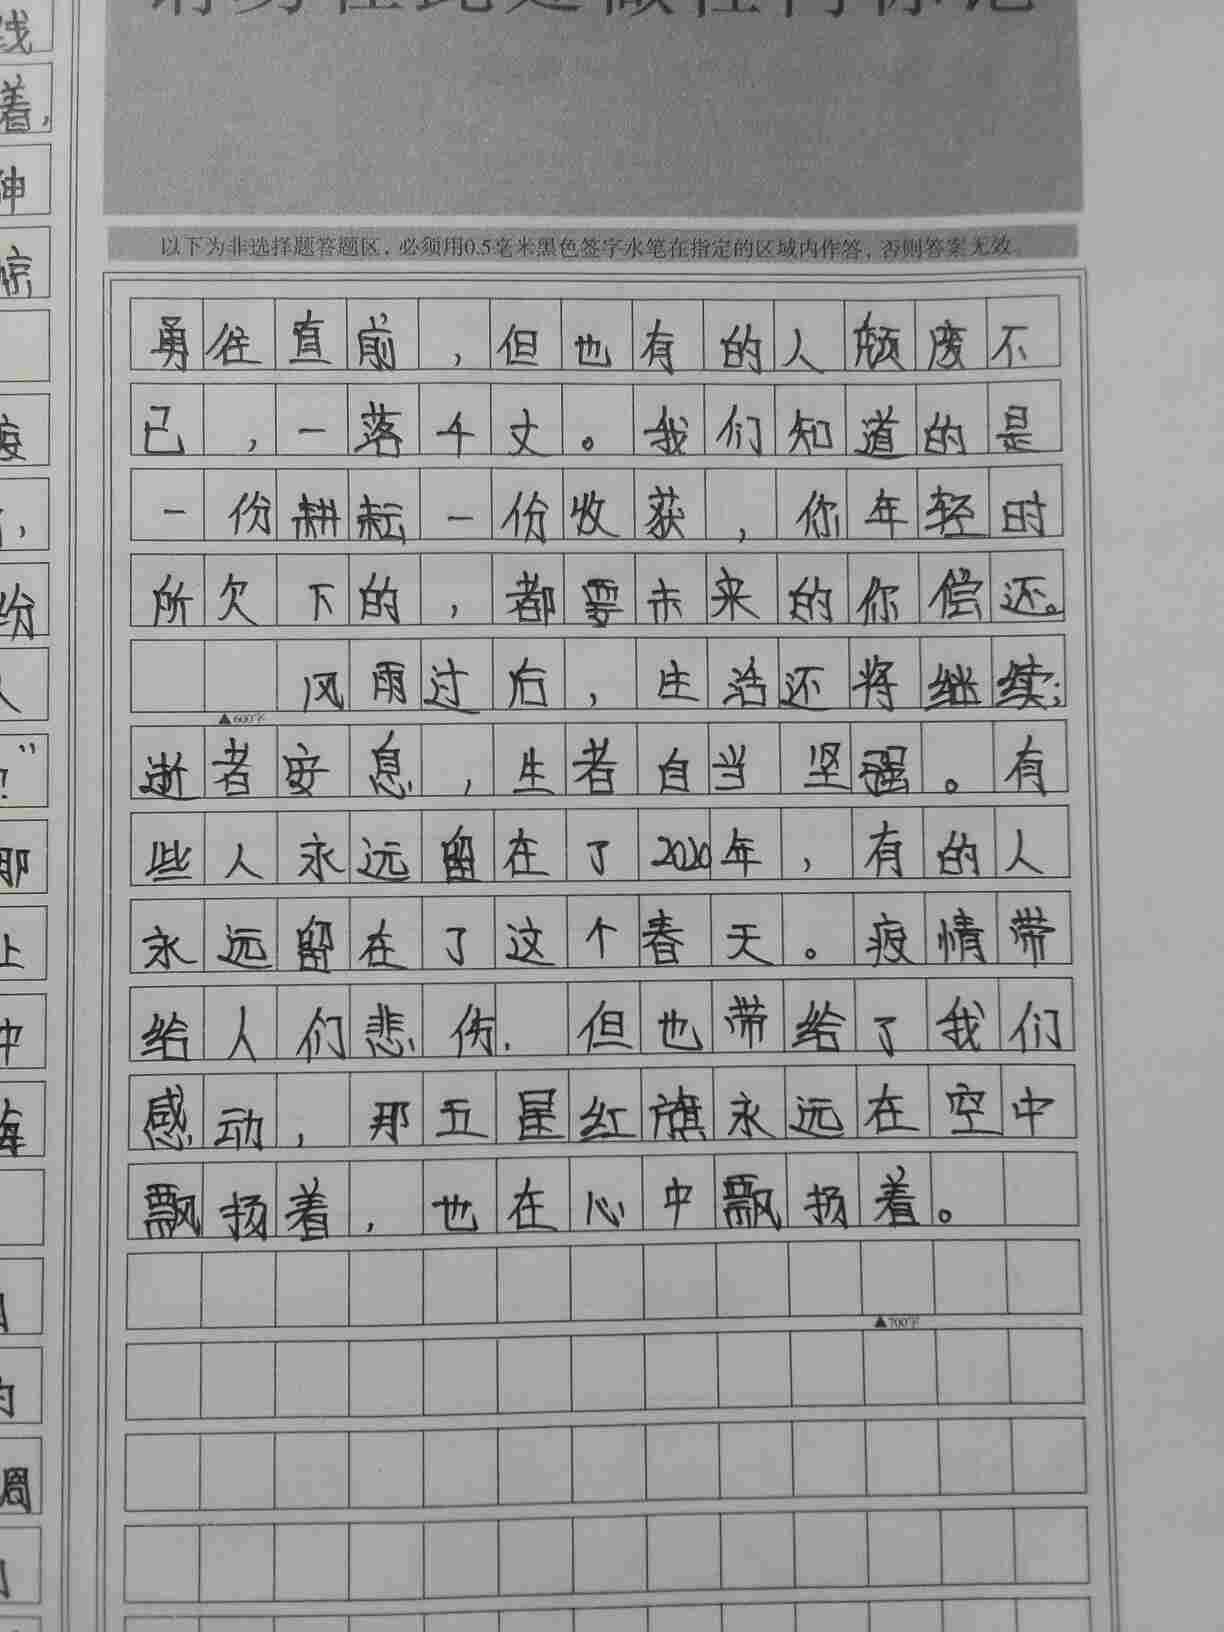 请勿在此处做任何标记
以下为非选择题答题区，必须用0.5毫米黑色签字水笔在指定的区域内作答，否则答案无效。
勇往直前，但也有的人颓废不
已，一落千丈。我们知道的是
一份耕耘一份收获，你年轻时
所欠下的，都要未来的你偿还。
风雨过后，生活还将继续；
▲600字
逝者安息，生者自当坚强。有
些人永远留在了2020年，有的人
永远留在了这个春天。疫情带
给人们悲伤．但也带给了我们
感动，那五星红旗永远在空中
飘扬着，也在心中飘扬着。
▲700字
线
着，
神
惊
疫
，
纷
人
！”
那
上
中
海
的